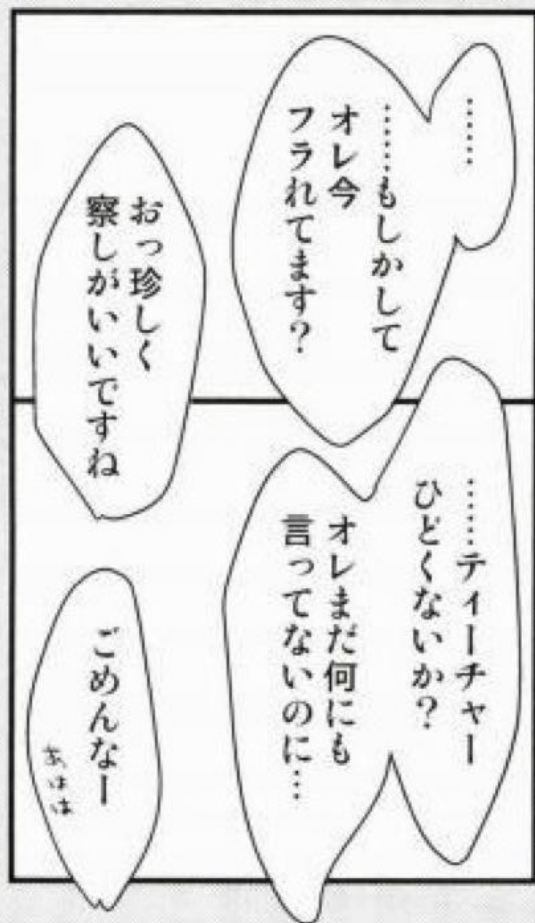 ……
……もしかして
オレ今
フラれてます？
おっ珍しく
察しがいいですね
……ティーチャー
ひどくないか？
オレまだ何にも
言ってないのに…
ごめんなー
あはは